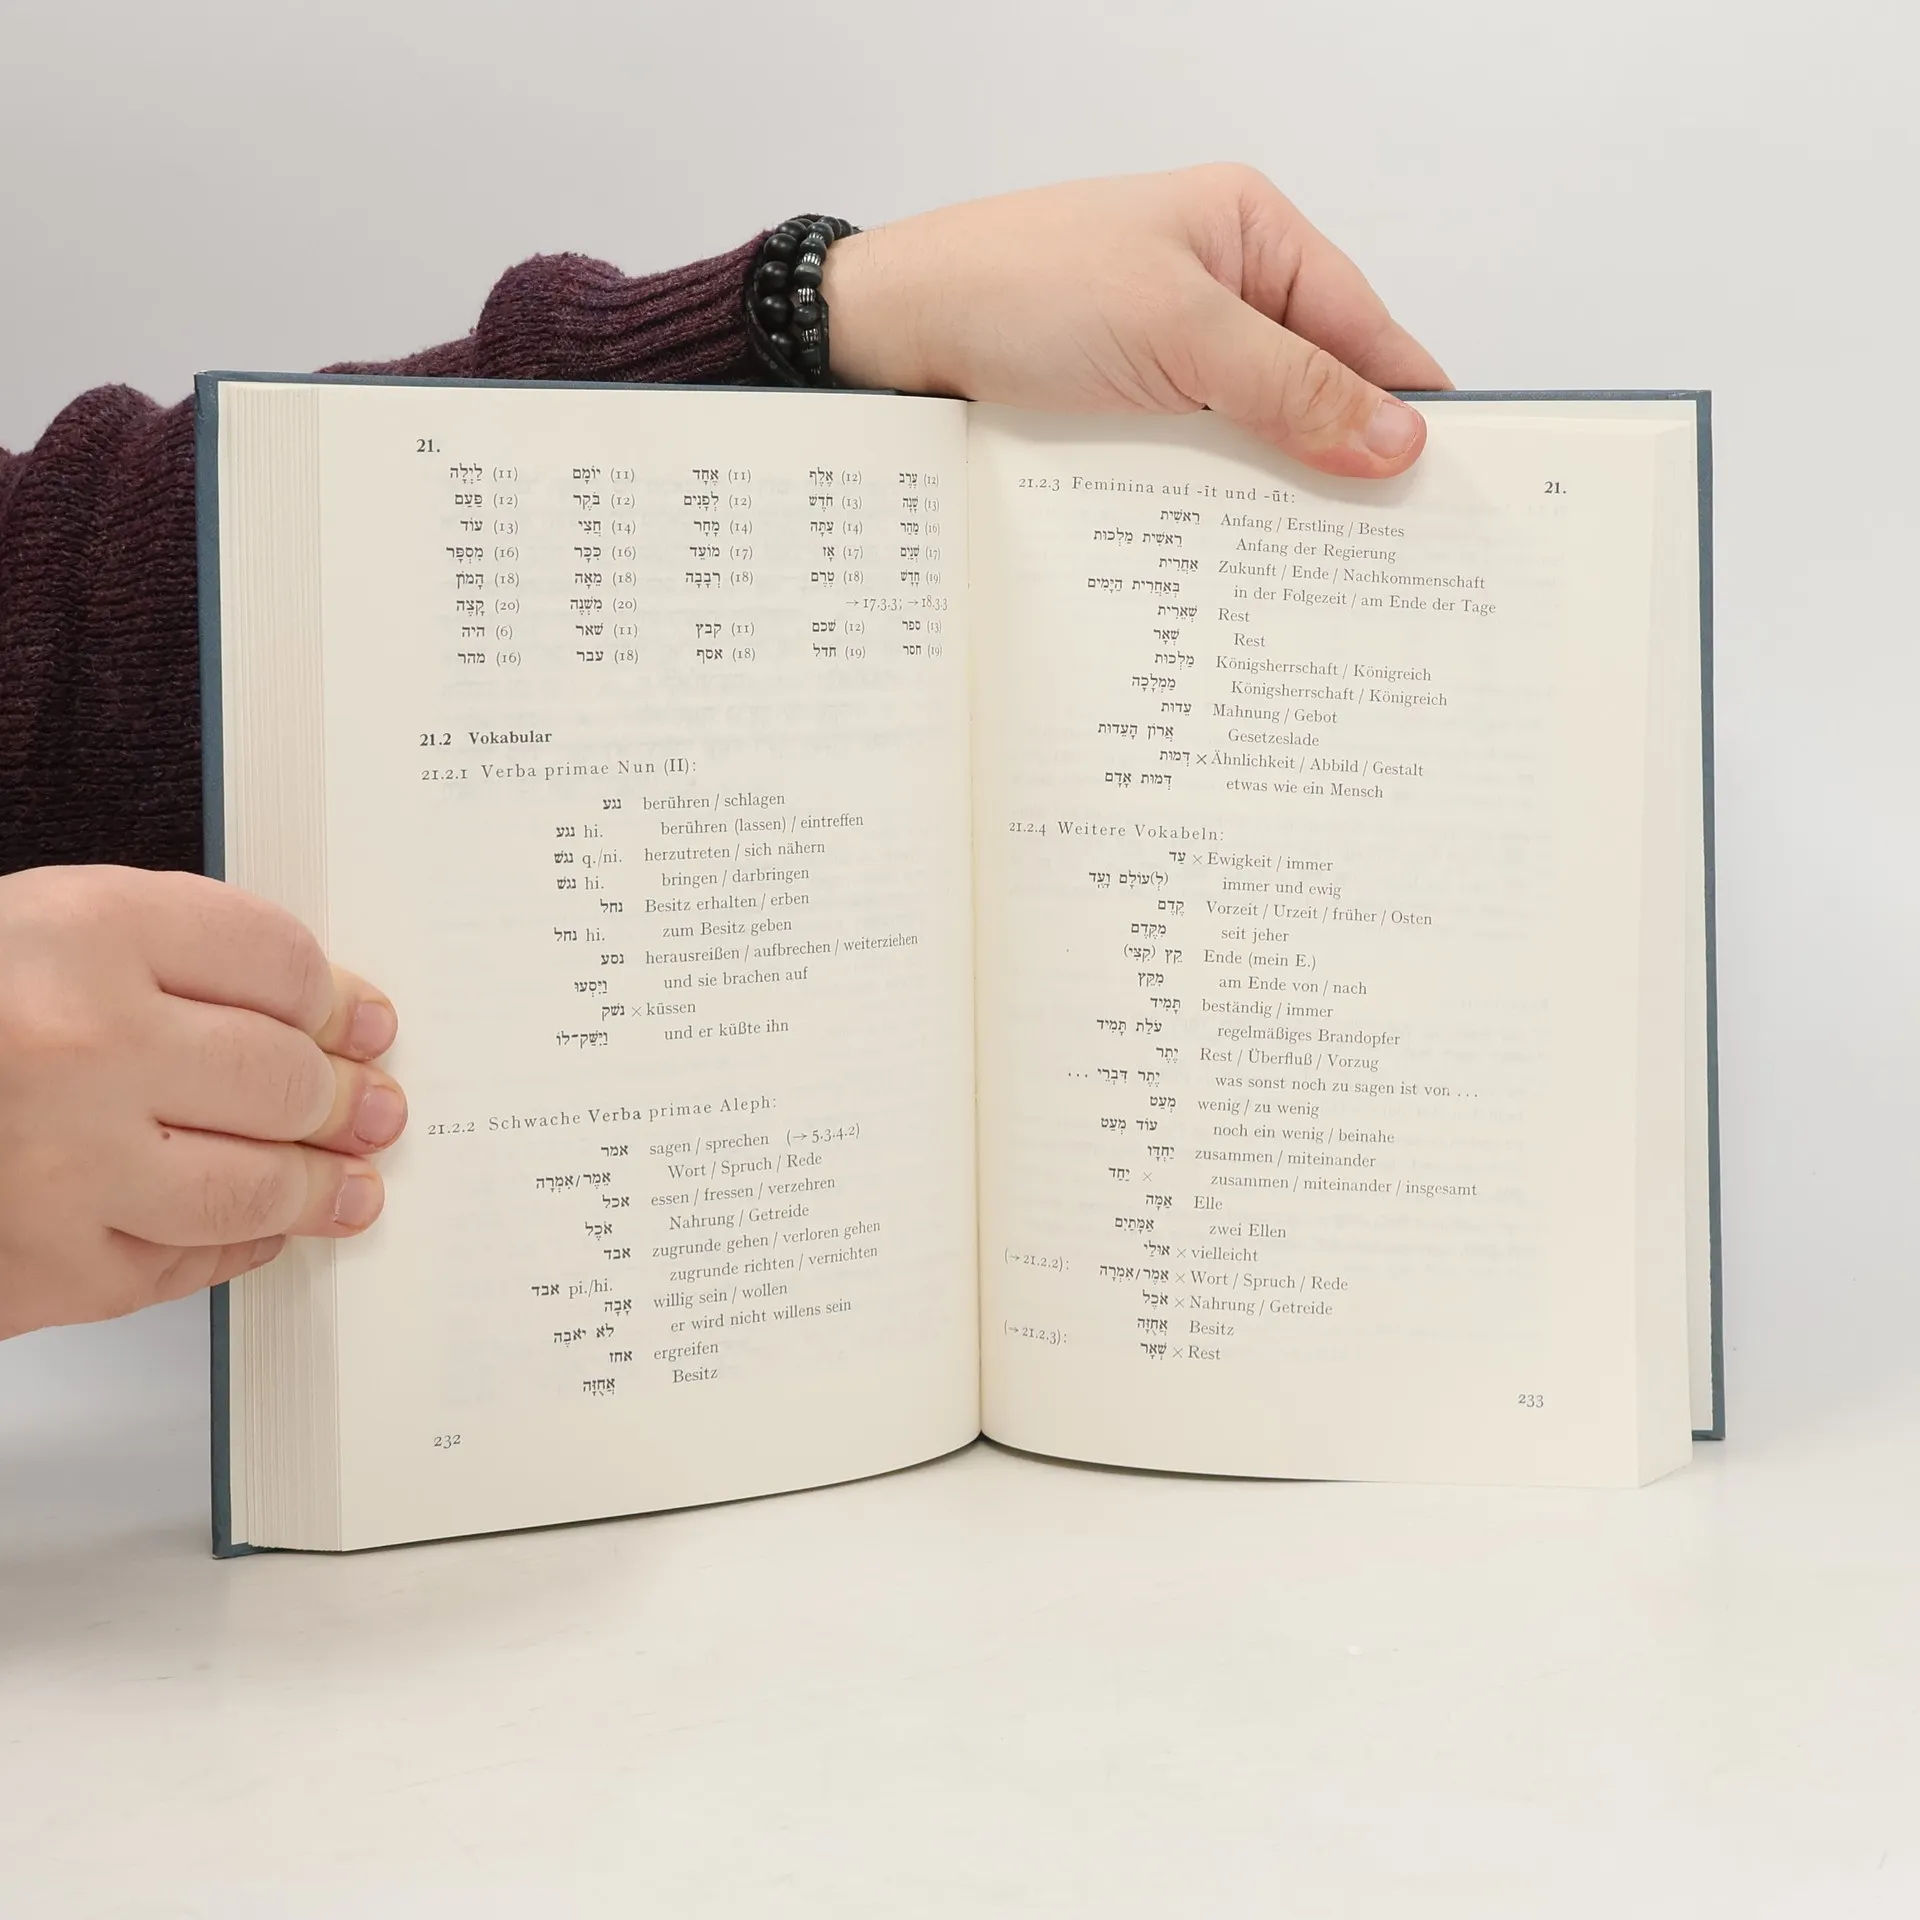 21.
לַיְלָה (11) יוֹמָם (11) אֶחָד (11) אֶלֶף (12) עֶרֶב (12)
פַּעַם (12) בֹּקֶר (12) לְפָנִים (12) חֹדֶשׁ (13) שָׁנָה (13)
עוֹד (13) חֲצִי (14) מָחָר (14) עַתָּה (14) מַהֵר (16)
מִסְפָּר (16) כִּכָּר (16) מוֹעֵד (17) אָז (17) שְׁנַיִם (17)
הָמוֹן (18) מֵאָה (18) רְבָבָה (18) טֶרֶם (18) חָדָשׁ (19)
קָצֶה (20) מִשְׁנֶה (20) → 17.3.3; → 18.3.3
היה (6) שׁאר (11) קבץ (11) שׁכם (12) ספר (13)
מהר (16) עבר (18) אסף (18) חדל (19) חסר (19)
21.2 Vokabular
21.2.1 Verba primae Nun (II):
נגע berühren / schlagen
נגע hi. berühren (lassen) / eintreffen
נגשׁ q./ni. herzutreten / sich nähern
נגשׁ hi. bringen / darbringen
נחל Besitz erhalten / erben
נחל hi. zum Besitz geben
נסע herausreißen / aufbrechen / weiterziehen
וַיִּסְעוּ und sie brachen auf
נשׁק × küssen
וַיִּשַּׁק־לוֹ und er küßte ihn
21.2.2 Schwache Verba primae Aleph:
אמר sagen / sprechen (→ 5.3.4.2)
אֵמֶר/אִמְרָה Wort / Spruch / Rede
אכל essen / fressen / verzehren
אֹכֶל Nahrung / Getreide
אבד zugrunde gehen / verloren gehen
אבד pi./hi. zugrunde richten / vernichten
אָבָה willig sein / wollen
לֹא יֹאבֶה er wird nicht willens sein
אחז ergreifen
אֲחֻזָּה Besitz
232
21.2.3 Feminina auf -īt und -ūt: 21.
רֵאשִׁית Anfang / Erstling / Bestes
רֵאשִׁית מַלְכוּת Anfang der Regierung
אַחֲרִית Zukunft / Ende / Nachkommenschaft
בְּאַחֲרִית הַיָּמִים in der Folgezeit / am Ende der Tage
שְׁאֵרִית Rest
שְׁאָר Rest
מַלְכוּת Königsherrschaft / Königreich
מַמְלָכָה Königsherrschaft / Königreich
עֵדוּת Mahnung / Gebot
אֲרוֹן הָעֵדוּת Gesetzeslade
דְּמוּת × Ähnlichkeit / Abbild / Gestalt
דְּמוּת אָדָם etwas wie ein Mensch
21.2.4 Weitere Vokabeln:
עַד × Ewigkeit / immer
(לְ)עוֹלָם וָעֶד immer und ewig
קֶדֶם Vorzeit / Urzeit / früher / Osten
מִקֶּדֶם seit jeher
קֵץ (קִצִּי) Ende (mein E.)
מִקֵּץ am Ende von / nach
תָּמִיד beständig / immer
עֹלַת תָּמִיד regelmäßiges Brandopfer
יֶתֶר Rest / Überfluß / Vorzug
יֶתֶר דִּבְרֵי ... was sonst noch zu sagen ist von ...
מְעַט wenig / zu wenig
עוֹד מְעַט noch ein wenig / beinahe
יַחְדָּו zusammen / miteinander
יַחַד × zusammen / miteinander / insgesamt
אַמָּה Elle
אַמָּתַיִם zwei Ellen
אוּלַי × vielleicht
(→ 21.2.2): אֵמֶר/אִמְרָה × Wort / Spruch / Rede
אֹכֶל × Nahrung / Getreide
אֲחֻזָּה Besitz
(→ 21.2.3): שְׁאָר × Rest
233